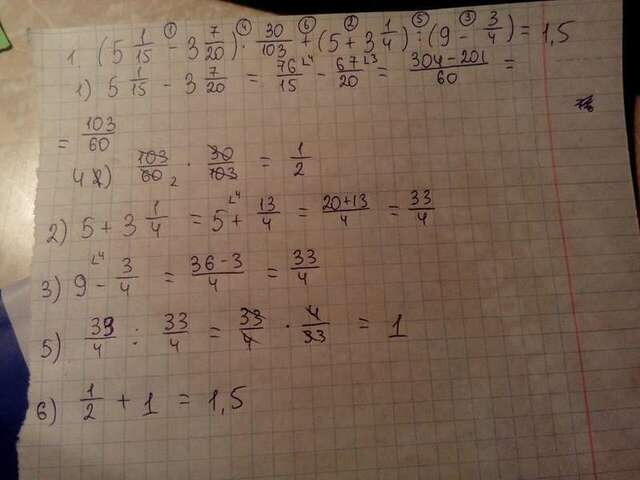 1. (5 1/15 - 3 7/20) · 30/103 + (5 + 3 1/4) : (9 - 3/4) = 1,5
① ④ ⑥ ② ⑤ ③
1) 5 1/15 - 3 7/20 = 76/15 - 67/20 = 304-201/60 =
= 103/60
4) 103/60 · 30/103 = 1/2
2
2) 5 + 3 1/4 = 5 + 13/4 = 20+13/4 = 33/4
3) 9 - 3/4 = 36-3/4 = 33/4
5) 33/4 : 33/4 = 33/4 · 4/33 = 1
6) 1/2 + 1 = 1,5